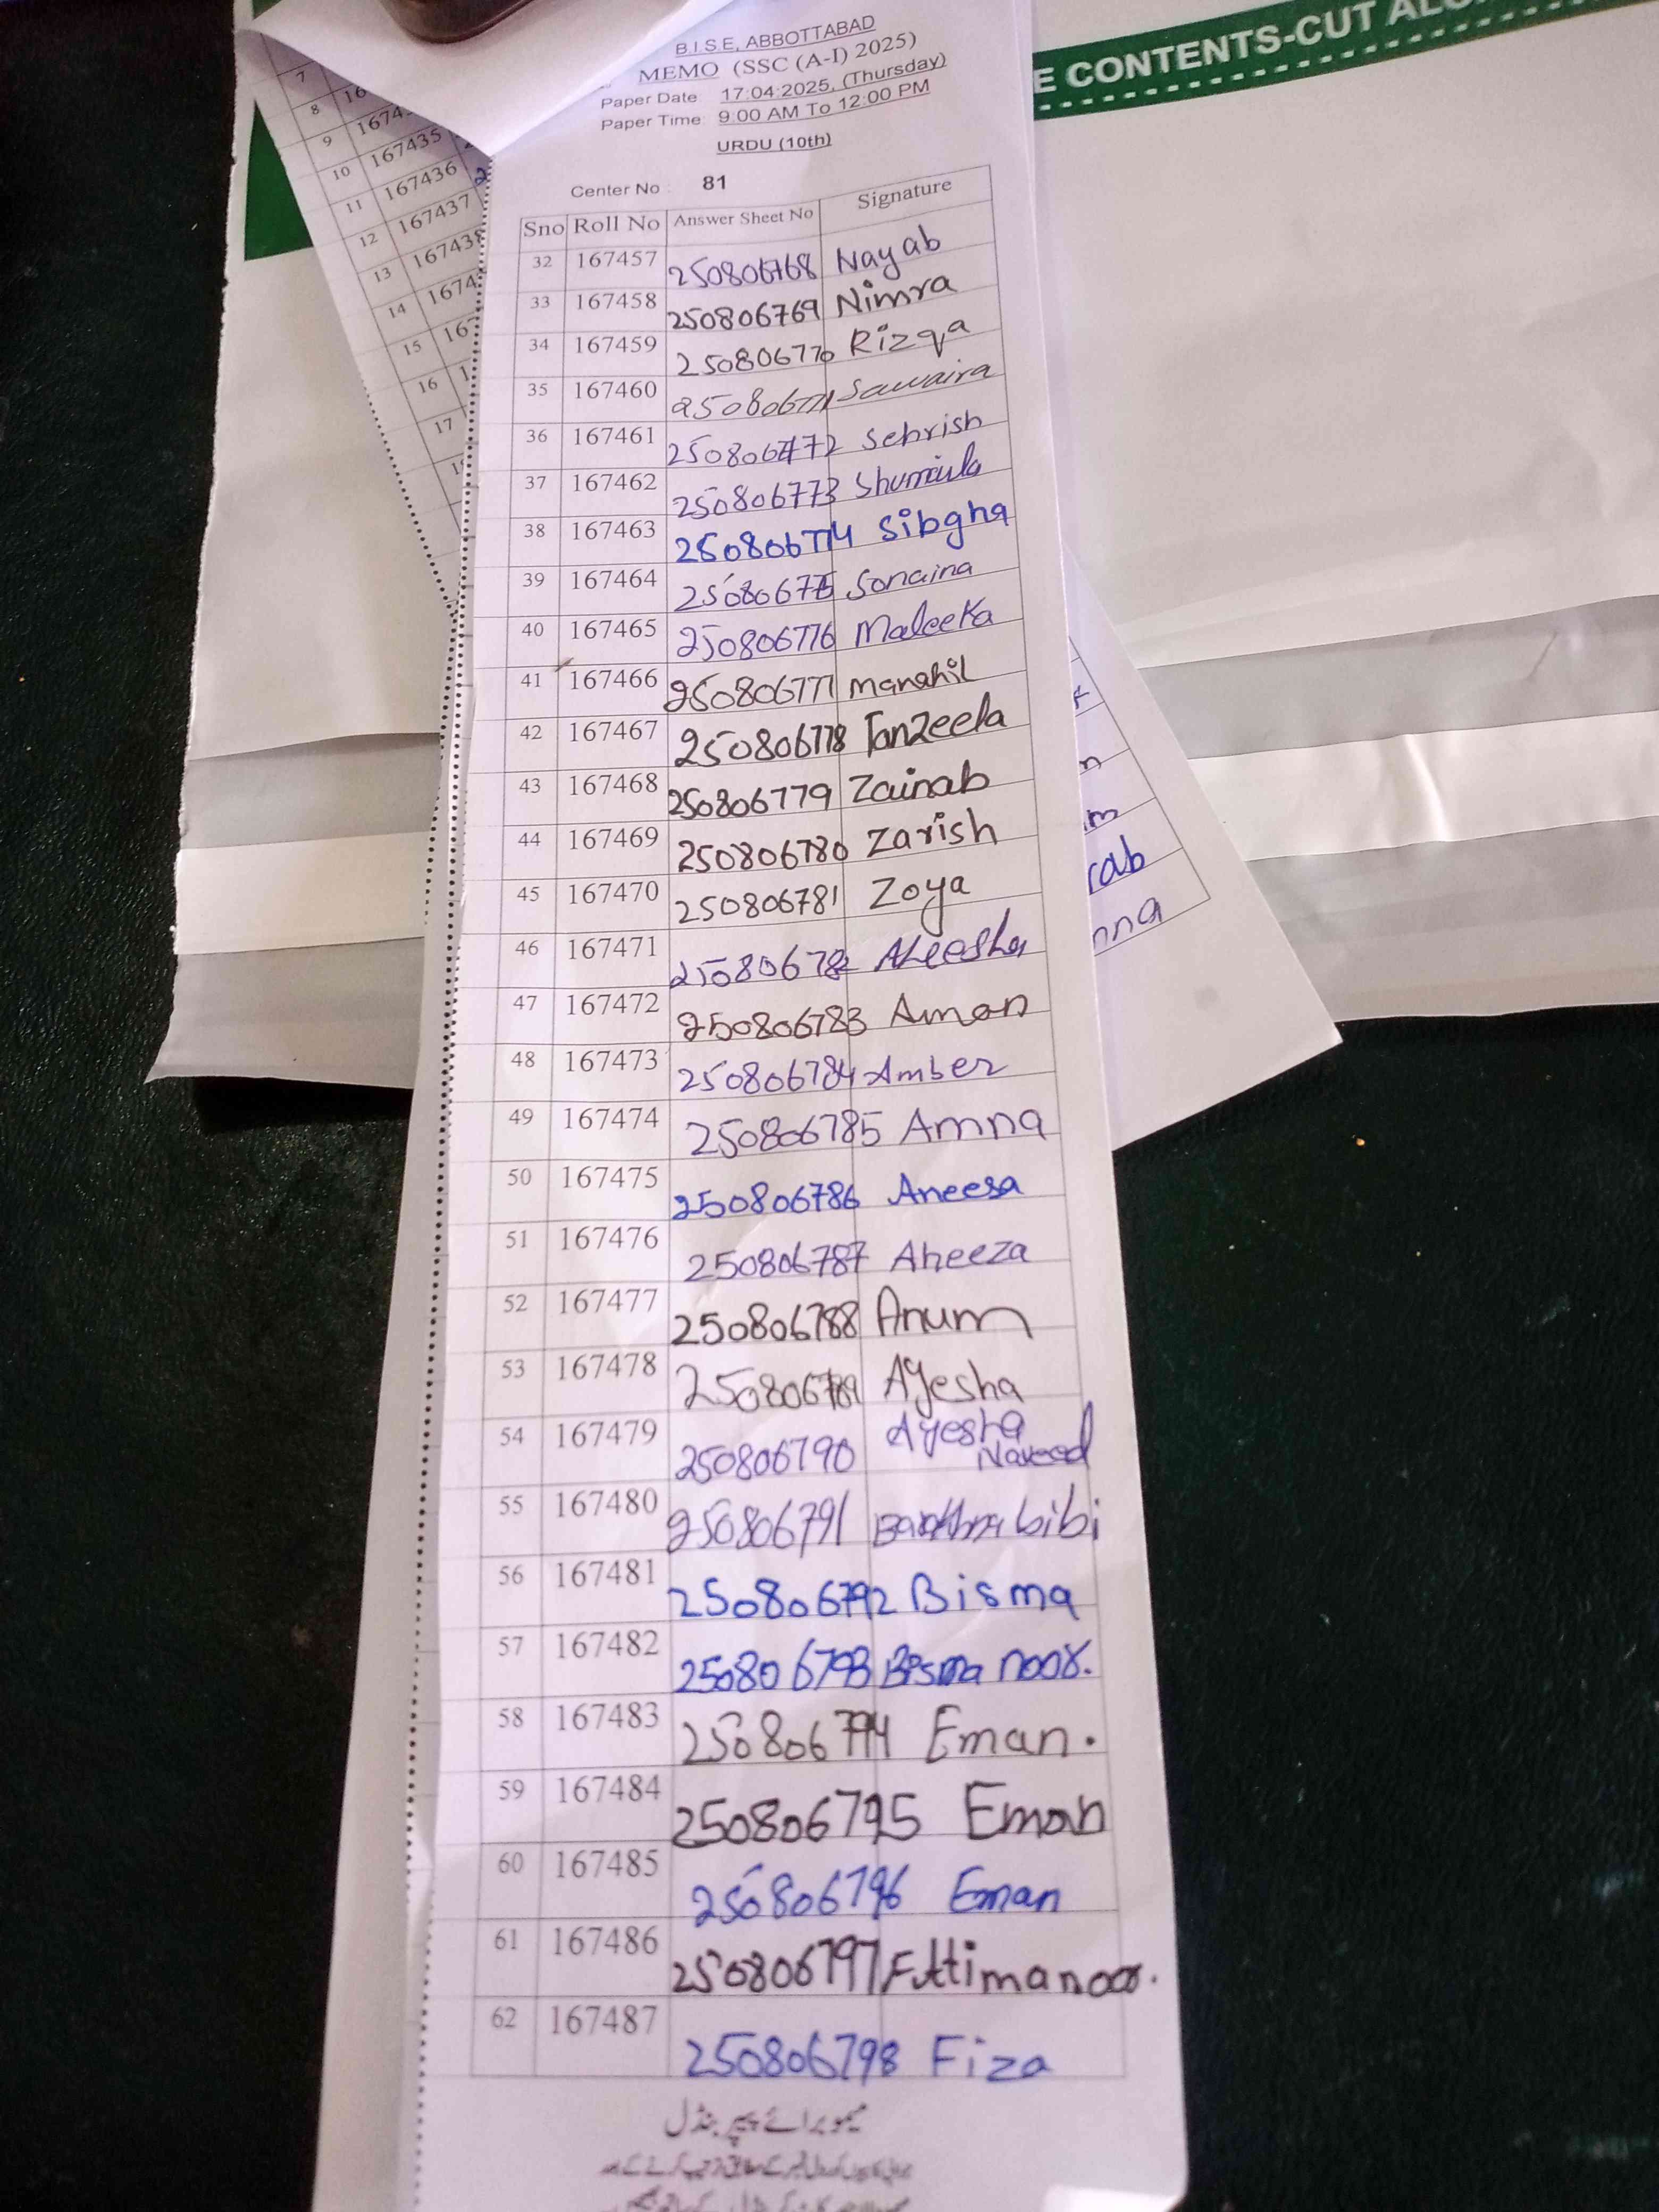 E CONTENTS-CUT ALO
B.I.S.E, ABBOTTABAD
MEMO (SSC (A-I) 2025)
Paper Date: 17:04:2025, (Thursday)
Paper Time: 9:00 AM To 12:00 PM
URDU (10th)
Center No : 81
Sno Roll No Answer Sheet No Signature
32 167457 250806768 Nayab
33 167458 250806769 Nimra
34 167459 250806770 Rizqa
35 167460 250806771 Sawaira
36 167461 250806772 Sehrish
37 167462 250806773 Shumaila
38 167463 250806774 Sibgha
39 167464 250806775 Sonaina
40 167465 250806776 Maleeka
41 167466 250806777 manahil
42 167467 250806778 Tanzeela
43 167468 250806779 Zainab
44 167469 250806780 Zarish
45 167470 250806781 Zoya
46 167471 250806782 Aleesha
47 167472 250806783 Aman
48 167473 250806784 Amber
49 167474 250806785 Amna
50 167475 250806786 Aneesa
51 167476 250806787 Aneeza
52 167477 250806788 Anum
53 167478 250806789 Ayesha
54 167479 250806790 Ayesha Naveed
55 167480 250806791 bibi
56 167481 250806792 Bisma
57 167482 250806793 Bisma noor.
58 167483 250806794 Eman.
59 167484 250806795 Eman
60 167485 250806796 Eman
61 167486 250806797 Fattima noor.
62 167487 250806798 Fiza
میمو برائے پیپر بنڈل
7
8 16
9 1674
10 167435
11 167436
12 167437
13 167438
14 1674
15 167
16 1
17
rab
nna